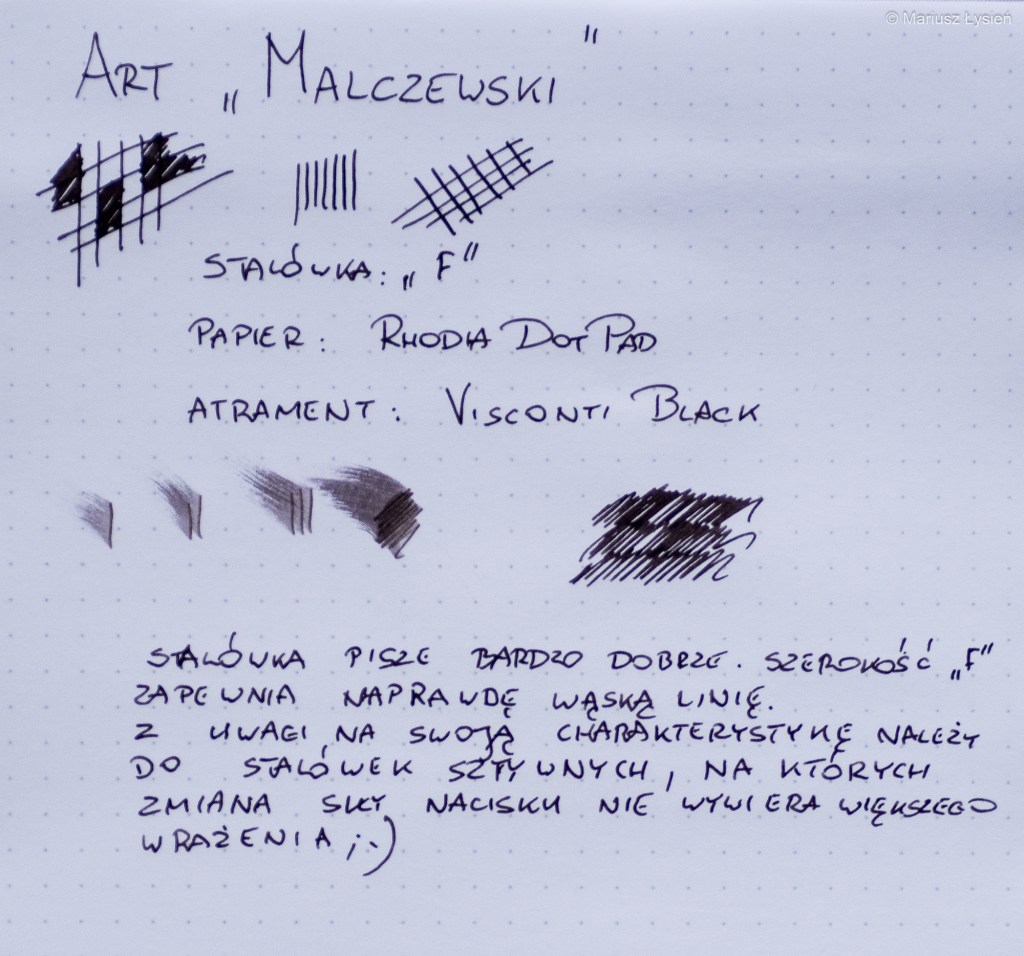 © Mariusz Łysień
ART „MALCZEWSKI"
STALÓWKA: „F"
PAPIER: RHODIA DOT PAD
ATRAMENT: VISCONTI BLACK
STALÓWKA PISZE BARDZO DOBRZE. SZEROKOŚĆ „F"
ZAPEWNIA NAPRAWDĘ WĄSKĄ LINIĘ.
Z UWAGI NA SWOJĄ CHARAKTERYSTYKĘ NALEŻY
DO STALÓWEK SZTYWNYCH, NA KTÓRYCH
ZMIANA SIŁY NACISKU NIE WYWIERA WIĘKSZEGO
WRAŻENIA ;-)